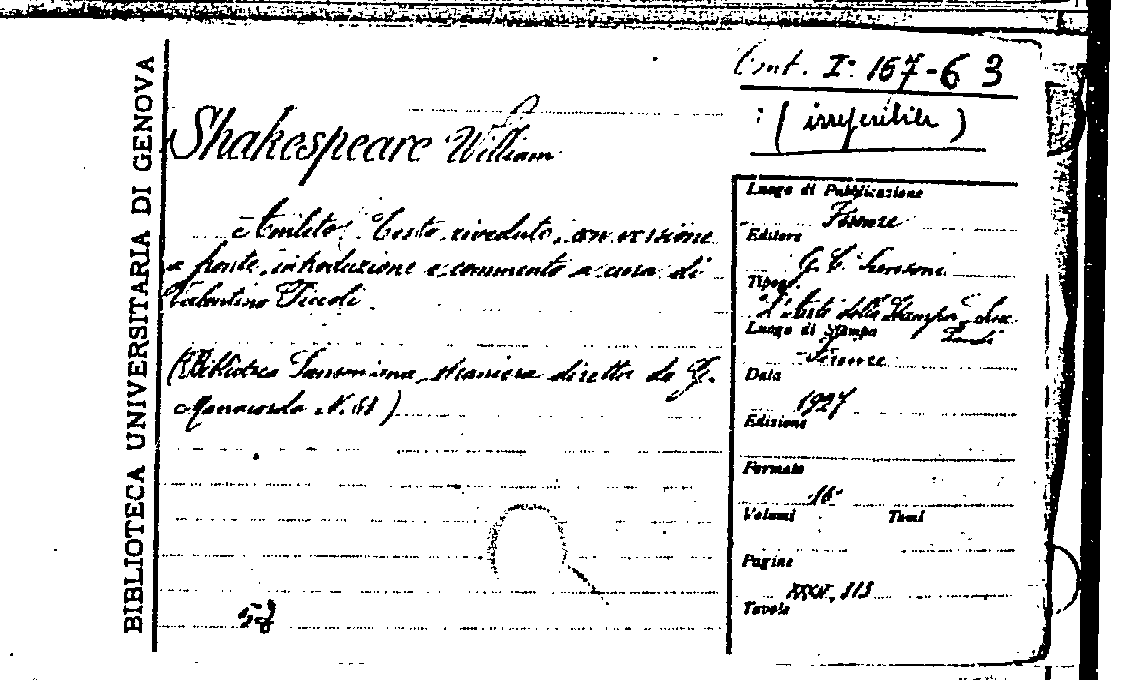 BIBLIOTECA UNIVERSITARIA DI GENOVA
Cont. I° 167-63
: (irreperibile)
Shakespeare William
Amleto. Testo riveduto, con versione
a fronte, introduzione e commento a cura di
Piccoli.
(Biblioteca Sansoniana straniera diretta da G.
Manacorda N.
Luogo di Pubblicazione
Firenze
Editore
G. C. Sansoni
Tipogr.
"L'Arte della Stampa"
Luogo di Stampa
Firenze
Data
1927
Edizione
Formato
16°
Volumi Tomi
Pagine
Tavole